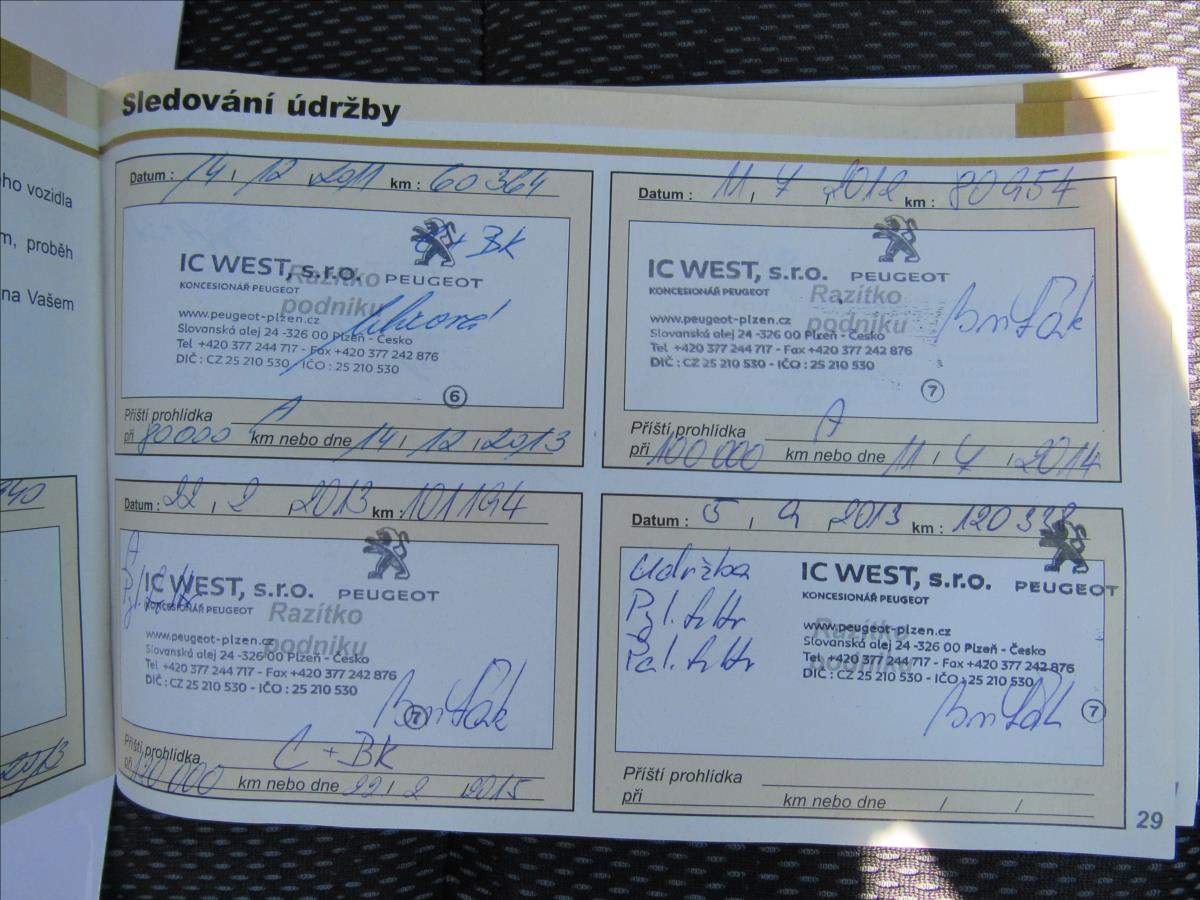 ho vozidla
m, proběh
na Vašem
Sledování údržby
Datum : 14 , 12 , 2011 km : 60364
C + BK
IC WEST, s.r.o.
PEUGEOT
KONCESIONÁŘ PEUGEOT
Razítko
podniku
www.peugeot-plzen.cz
Slovanská alej 24 -326 00 Plzeň - Česko
Tel +420 377 244 717 - Fax +420 377 242 876
DIČ : CZ 25 210 530 - IČO : 25 210 530
6
Příští prohlídka A
při 80000 km nebo dne 14 / 12 / 2013
Datum : 11 , 7 , 2012 km : 80954
IC WEST, s.r.o.
PEUGEOT
KONCESIONÁŘ PEUGEOT
Razítko
podniku
www.peugeot-plzen.cz
Slovanská alej 24 -326 00 Plzeň - Česko
Tel +420 377 244 717 - Fax +420 377 242 876
DIČ : CZ 25 210 530 - IČO : 25 210 530
7
Příští prohlídka A
při 100 000 km nebo dne 11 / 7 / 2014
Datum : 22 , 2 , 2013 km : 101194
A
IC WEST, s.r.o.
PEUGEOT
KONCESIONÁŘ PEUGEOT
Razítko
podniku
www.peugeot-plzen.cz
Slovanská alej 24 -326 00 Plzeň - Česko
Tel +420 377 244 717 - Fax +420 377 242 876
DIČ : CZ 25 210 530 - IČO : 25 210 530
7
Příští prohlídka C + BK
při 120000 km nebo dne 22 / 2 2015
Datum : 5 , 9 , 2013 km : 120338
Udržba
Pyl. filtr
Pal. filtr
IC WEST, s.r.o.
PEUGEOT
KONCESIONÁŘ PEUGEOT
Razítko
podniku
www.peugeot-plzen.cz
Slovanská alej 24 -326 00 Plzeň - Česko
Tel +420 377 244 717 - Fax +420 377 242 876
DIČ : CZ 25 210 530 - IČO : 25 210 530
7
Příští prohlídka
při km nebo dne / /
29